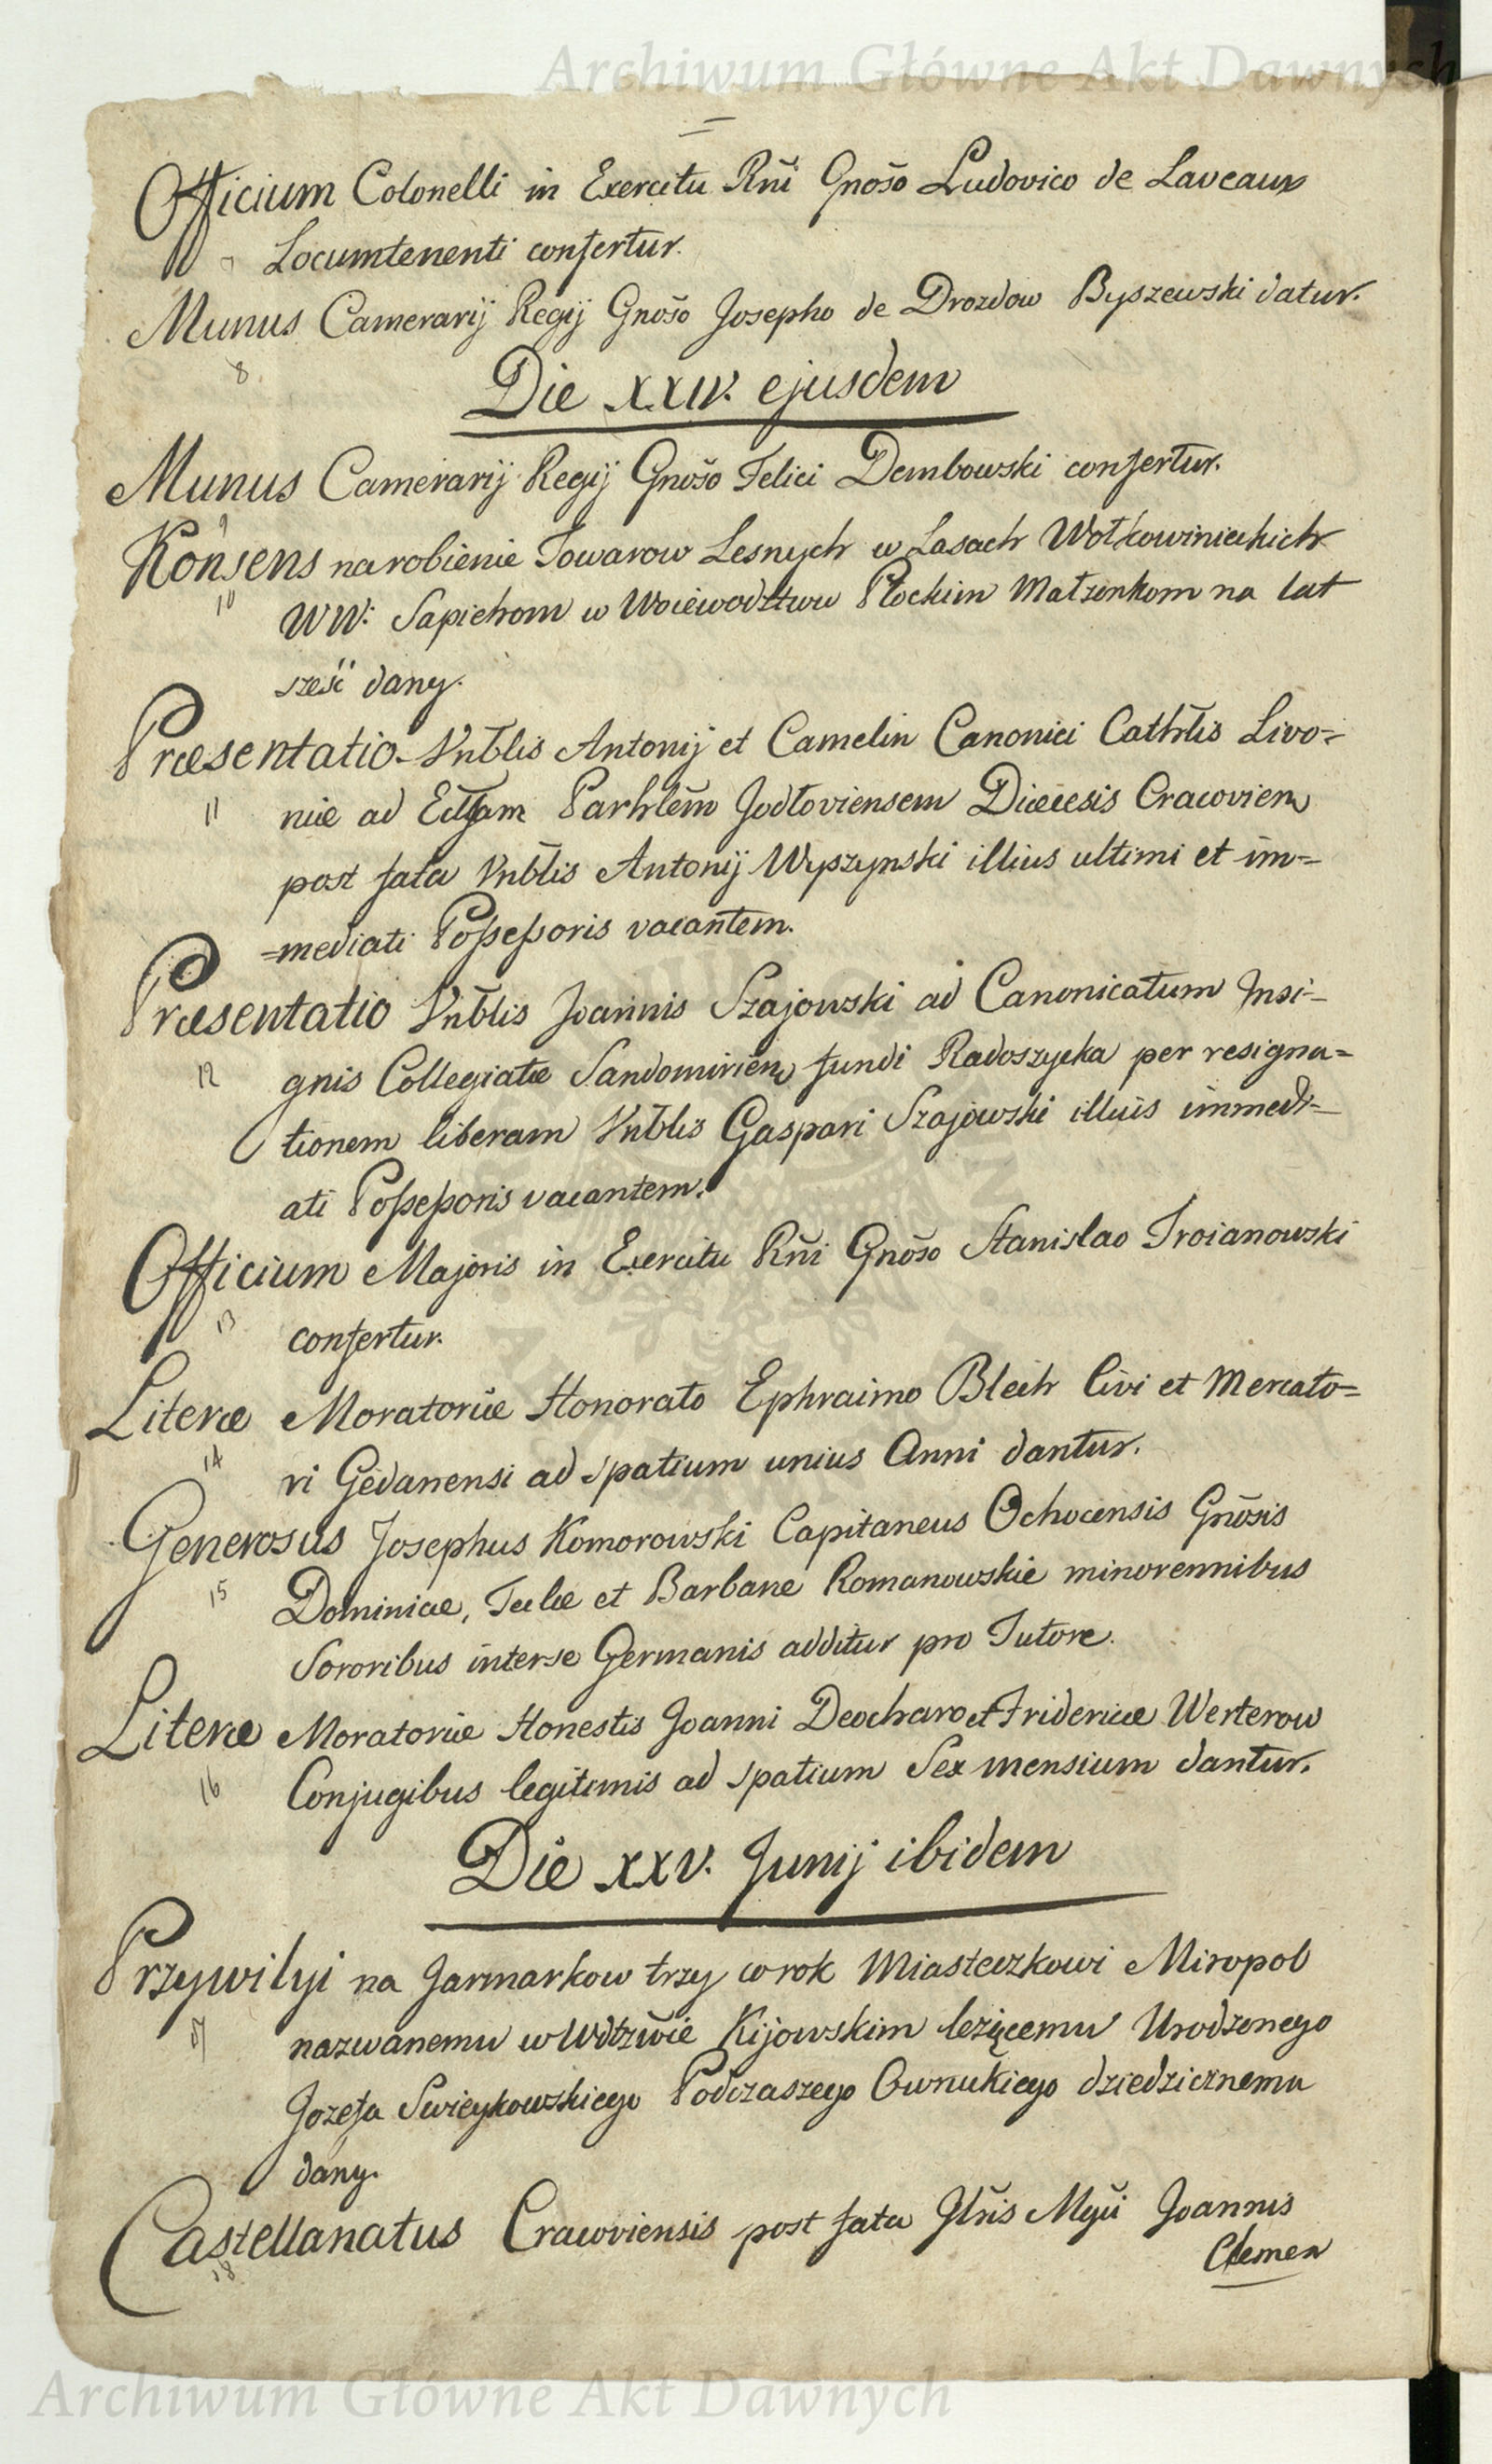 Archiwum Główne Akt Dawnych
Officium Colonelli in Exercitu Rni Gnoso Ludovico de Laveaux
Locumtenenti confertur.
Munus Camerarij Regij Gnoso Josepho de Drozdow Byszewski datur.
8.
Die XXIV. ejusdem
Munus Camerarij Regij Gnoso Felici Dembowski confertur.
9
Konsens na robienie Towarow Lesnych w Lasach Wołkowinieckich
10
WW: Sapiehom w Woiewodztwie Płockim Małżonkom na lat
sześć dany.
Præsentatio Vnblis Antonij et Camelin Canonici Cathlis Livo=
11
niæ ad Ecclam Parhlem Jodłoviensem Diæcesis Cracovien
post fata Vnblis Antonij Wyszynski illius ultimi et im=
=mediati Possessoris vacantem.
Præsentatio Vnblis Joannis Szajowski ad Canonicatum Insi-
12
gnis Collegiatæ Sandomirien fundi Radoszycka per resigna=
tionem liberam Vnblis Gaspari Szajowski illius immedi-
ati Possessoris vacantem.
Officium Majoris in Exercitu Rni Gnoso Stanislao Troianowski
13
confertur.
Literæ Moratoriæ Honorato Ephraimo Blech Civi et Mercato=
14
ri Gedanensi ad spatium unius Anni dantur.
Generosus Josephus Komorowski Capitaneus Ochocensis Gnosis
15
Dominicæ, Teclæ et Barbaræ Romanowskie minorennibus
Sororibus inter se Germanis additur pro Tutore.
Literæ Moratoriæ Honestis Joanni Deocharo et Fridericæ Werterow
16
Conjugibus legitimis ad spatium Sex mensium dantur.
Die XXV. Junij ibidem
Przywilyi na Jarmarkow trzy w rok Miasteczkowi Miropol
17
nazwanemu w Wdztwie Kijowskim leżącemu Urodzonego
Jozefa Swieykowskiego Podczaszego Owruckiego dziedzicznemu
dany.
Castellanatus Cracoviensis post fata Illris Mgci Joannis
18
Clemen
Archiwum Główne Akt Dawnych